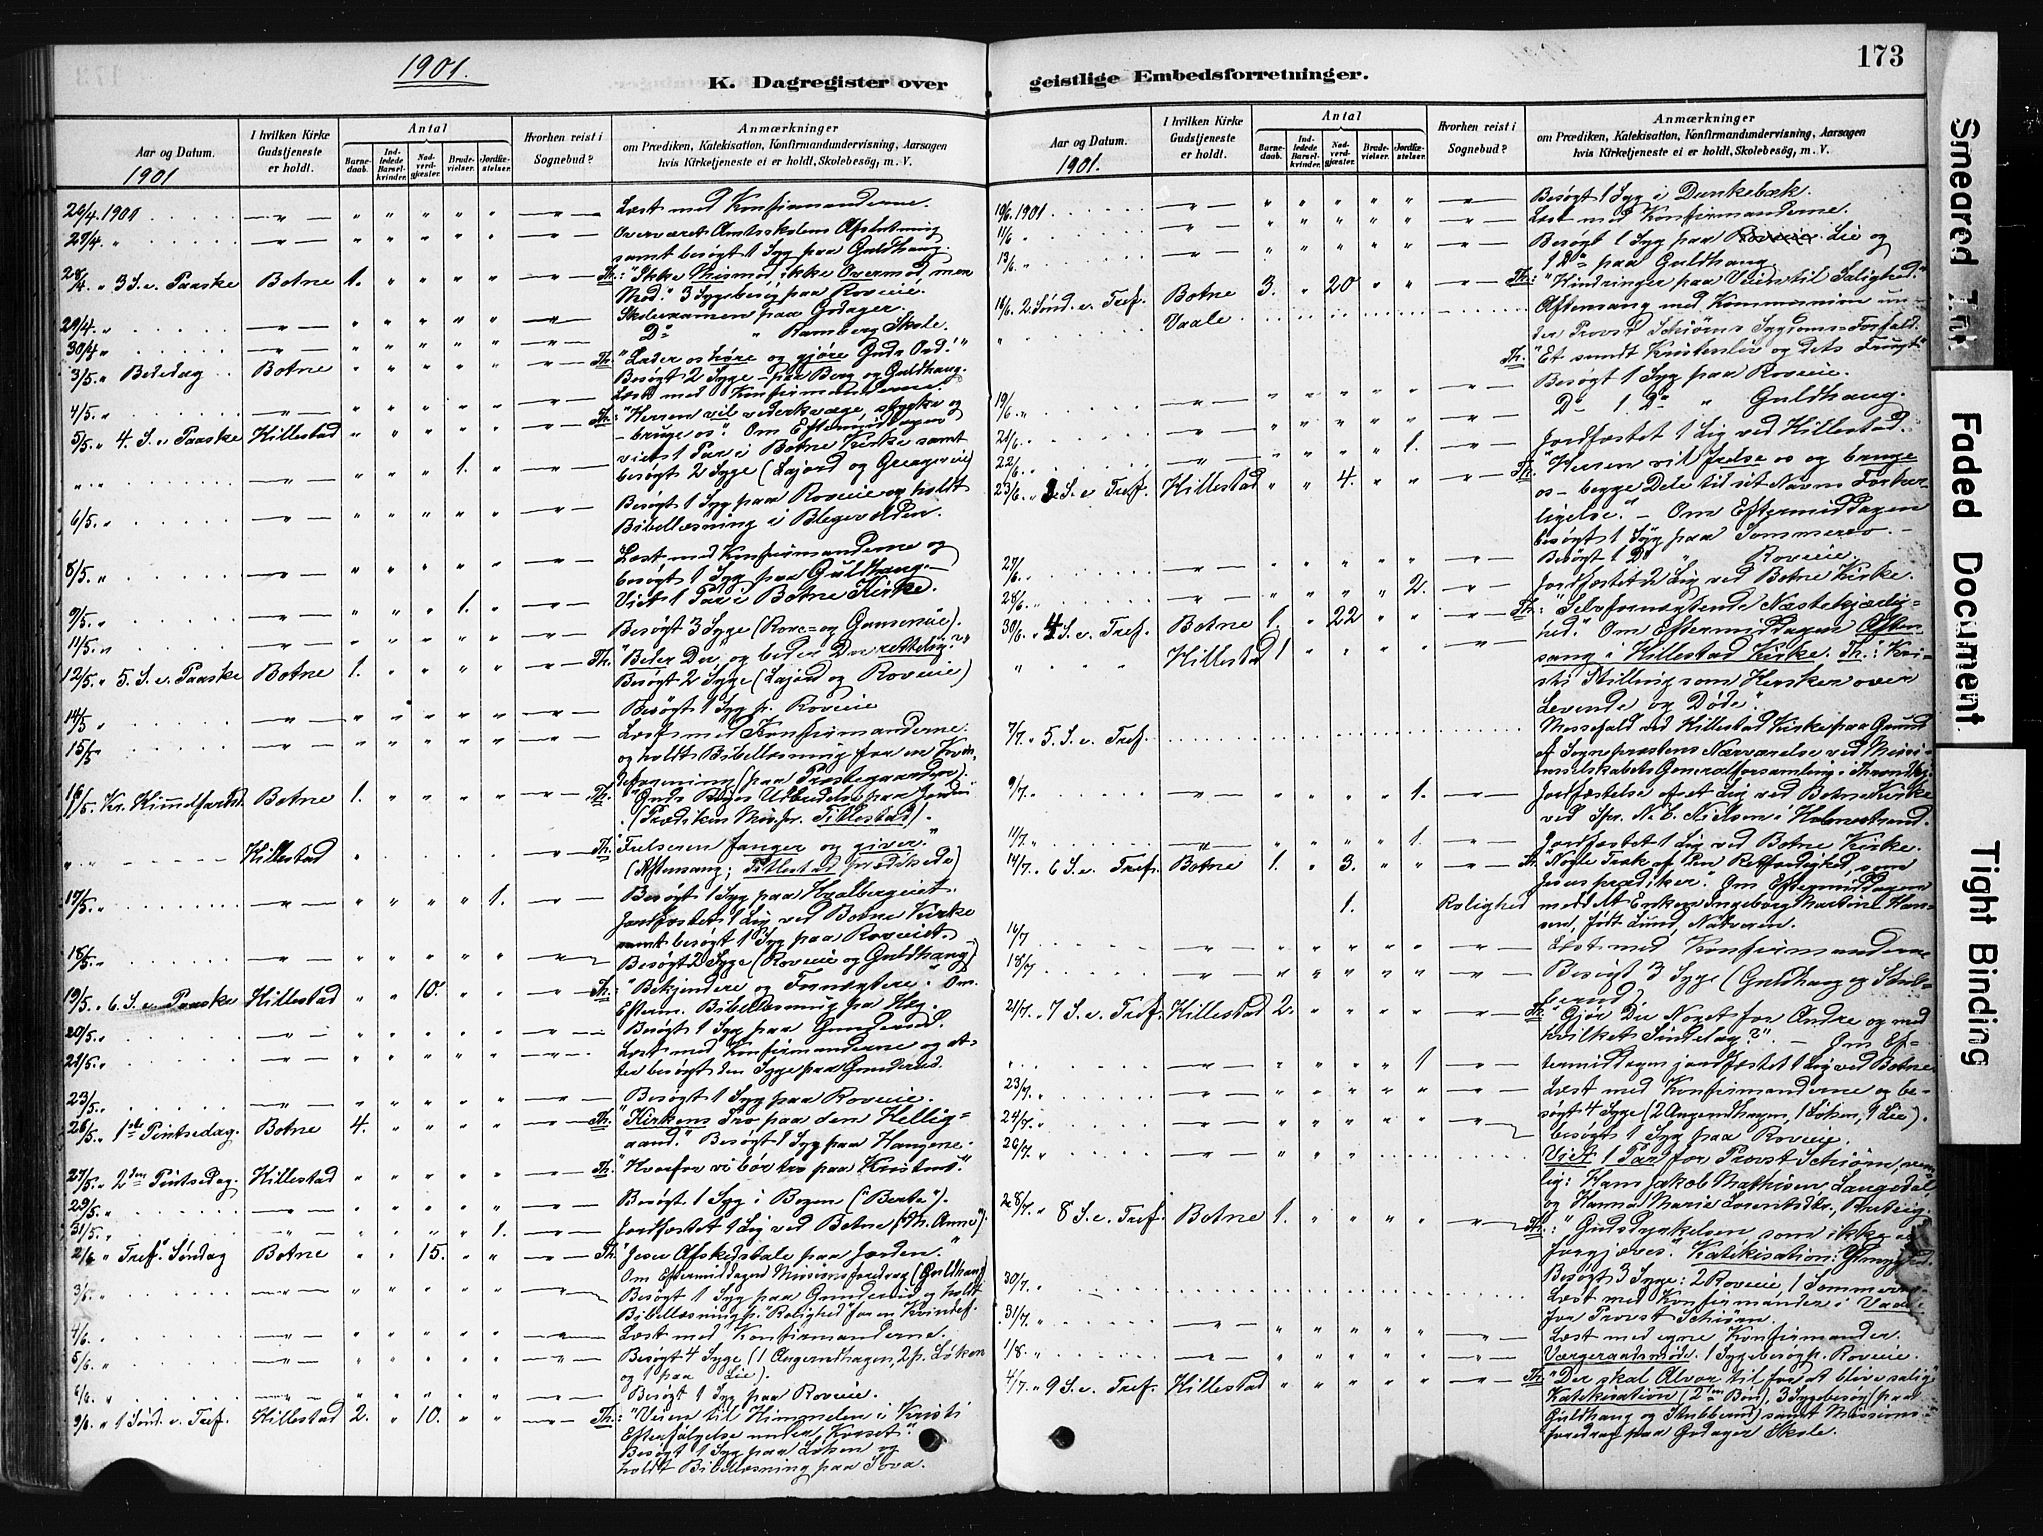 1901.
K. Dagregister over
Aar og Datum.
1901
I hvilken Kirke Gudstjeneste er holdt.
Antal
Barnedaab.
Indledede Barselkvinder.
Nadverdgjester.
Brudevielser.
Jordfæstelser.
Hvorhen reist i Sognebud?
Anmærkninger
om Prædiken, Katekisation, Konfirmandundervisning, Aarsagen
hvis Kirketjeneste ei er holdt, Skolebesøg, m. V.
26/4 1901 Læst med Konfirmanderne.
27/4 " Overværet Amtsskolens Afslutning
samt besøgt 1 Syg paa Guldhang.
28/4 " 3 S. e. Paaske Botne 1. Th.: "Ikke Mismod, ikke Overmod, men
Mod." 3 Sygebesøg paa Roveie.
29/4 " Skoleexamen paa Gdager.
30/4 " Do " Ramberg Skole.
3/5 " Bededag Botne Th: "Lader os høre og gjøre Guds Ord!"
Besøgt 2 Syge - paa Berg og Guldhang.
4/5 " Læst med Konfirmanderne.
5/5 " 4. S. e. Paaske Killestad Th: "Herren vil vederkvæge, styrke og
- bruge os". Om Eftermiddagen
" " 1. viet 1 Par i Botne Kirke samt
besøgt 2 Syge (Lajord og Greagereie)
6/5 " Besøgt 1 Syg paa Roveie og holdt
Bibellæsning i Blegevolden.
8/5 " Læst med Konfirmanderne og
besøgt 1 Syg paa Guldhang.
9/5 " 1. Viet 1 Par i Botne Kirke.
11/5 " Besøgt 3 Syge (Rore= og Gunsereie).
12/5 " 5. S. e. Paaske Botne 1. Th: "Beder Du, og beder Du rettelig?"
Besøgt 2 Syge (Lajord og Roveie)
14/5 " Besøgt 1 Syg p. Roveie
15/5 " Læst med Konfirmanderne.
og holdt Bibellæsning for en Kvin-
deforening (paa Præstegaarden).
16/5 " Kr. Himmelfartsd. Botne 1. Th: "Guds Riges Udbredelse paa Jorden
(Prædiken Miss.pr. Tillestad).
" " Killestad Th: "Frelseren fanger og giver."
(Aftensang; Tillestad prædikede)
17/5 " 1. Besøgt 1 Syg paa Hvalbergeiet.
Jordfæstet 1 Lig ved Botne Kirke
samt besøgt 1 Syg paa Roveiet.
18/5 " Besøgt 2 Syge (Roveie og Guldhang)
19/5 " 6. S. e. Paaske Killestad 10. Th: "Bekjendere og Fornægtere." Om
Efterm. Bibellæsning paa Høg.
20/5 " Besøgt 1 Syg paa Gunderud.
21/5 " Læst med Konfirmanderne og at-
ter besøgt den Syge paa Gunderud.
23/5 " Besøgt 1 Syg paa Roveie.
26/5 " 1ste Pintsedag. Botne 4. Th: "Kirkens Tro paa den Hellig=
aand." Besøgt 1 Syg paa Hangene.
27/5 " 2den Pintsedag. Killestad Th: "Hvorfor vi bør tro paa Kristus".
29/5 " Besøgt 1 Syg i Bogen ("Berta").
31/5 " 1. Jordfæstet 1 Lig ved Botne (M. Anne").
2/6 " Tref. Søndag Botne 15. Th: "Jesu Afskedstale paa Jorden."
Om Eftermiddagen Missionsforedrag (Guldhang)
3/6 " Besøgt 1 Syg paa Gunderud og holdt
Bibellæsning p. "Rolighed" for en Kvindef.
4/6 " Læst med Konfirmanderne.
5/6 " Besøgt 4 Syge (1 Angerndhagen, 2 p. Løken
og 1 paa Lie).
6/6 " Besøgt 1 Syg paa Roveie.
9/6 " 1 Sønd. e. Tref. Killestad 2. 10. Th: "Veien til Himmelen i Kristi
Efterfølgelse under Korset".
Besøgt 1 Syg paa Løken og
holdt Bibellæsning paa Sova.
173
geistlige Embedsforretninger.
Aar og Datum.
1901.
I hvilken Kirke Gudstjeneste er holdt.
Antal
Barnedaab.
Indledede Barselkvinder.
Nadverdgjæster.
Brudevielser.
Jordfæstelser.
Hvorhen reist i Sognebud?
Anmærkninger
om Prædiken, Katekisation, Konfirmandundervisning, Aarsagen
hvis Kirketjeneste ei er holdt, Skolebesøg, m. V.
10/6 1901 Besøgt 1 Syg i Dunkebæk.
11/6 " Læst med Konfirmanderne.
13/6 " Besøgt 1 Syg paa Lie og
1 Do paa Guldhang
16/6 " 2 Sønd. e. Tref. Botne 3. 20 Th: "Hindringer paa Veien til Salighed."
Vaale Aftensang med Kommunion un-
" der Provst Schiørns Sygdoms=Forfald.
Th: "Et sundt Kristenliv og dets Frugt".
Besøgt 1 Syg paa Roveie.
19/6 " Do 1 Do " Guldhang.
21/6 " 1. Jordfæstet 1 Lig ved Killestad.
22/6 "
23/6 " 3 S. e Tref. Killestad 4. Th: "Herren vil frelse os og bruge
os - begge Dele til sit Navns Forher-
ligelse." - Om Eftermiddagen
besøgt 1 Syg paa Sommerro. -
27/6 " Besøgt 1 Do " Roveie.
28/6 " 2. Jordfæstet 2 Lig ved Botne Kirke.
30/6 " 4 S. e. Tref. Botne 1. 22 Th: "Selvfornægtende Næstekjærlig=
hed." Om Eftermiddagen Aften-
" Killestad 1 sang i Killestad Kirke. Th: "Kri-
sti Stilling som Hersker over
Levende og Døde".
7/7 " 5. S. e. Tref. Messefald ved Killestad Kirke paa Grund
af Sognepræstens Nærværelse ved Missi-
onsselskabets Generalforsamling i Throndhj.
9/7 " 1. Jordfæstelse af et Lig ved Botne Kirke
ved Spr. N. C. Nielsen i Holmestrand.
11/7 " 1. Jordfæstet 1 Lig ved Botne Kirke.
14/7 " 6 S. e. Tref. Botne 1. 3. Th. Nogle Træk af "Den Retfærdighed, som
Jesus prædiker." Om Eftermiddagen
1. Rolighed meddelt Enken Ingeborg Martine Han-
sen, født Lund, Nadveren.
16/7 Læst med Konfirmanderne
18/7 Besøgt 3 Syge (Guldhang og Stub-
berud).
21/7 " 7 S. e. Tref. Killestad 2. Th: "Gjør Du Noget for Andre og med
hvilket Sindelag?" - Om Ef-
" 1 termiddagen jordfæstet 1 Lig ved Botne
23/7 " Læst med Konfirmanderne og be-
søgt 4 Syge (2 Angerndhagen, 1 Løken, 1 Lie).
24/7 " besøgt 1 Syg paa Roveie.
26/7 " Viet 1 Par for Provst Schiørn, nem-
lig: Hans Jakob Mathisen Langedal
og Hanna Marie Lorentsdtr.
28/7 " 8 S. e. Tref. Botne 1. Th: "Gudsdyrkelsen som ikke er
forgjæves." Katekisation:
Besøgt 3 Syge: 2 Roveie, 1 Sommerro.
30/7 " Læst med Konfirmander i Vaale
for Provst Schiørn.
31/7 " Læst med egne Konfirmander.
1/8 " Værgeraadsmøde. 1 Sygebesøg p. Roveie.
4/7 " 9 S. e. Tref. Killestad Th: "Der skal Alvor til for at blive salig"
Katekisation (2den Bøn), 3 Sygebesøg (paa
Guldhang og Stubberud) samt Missions-
foredrag paa Gdager Skole.
Smeared Ink
Faded Document
Tight Binding